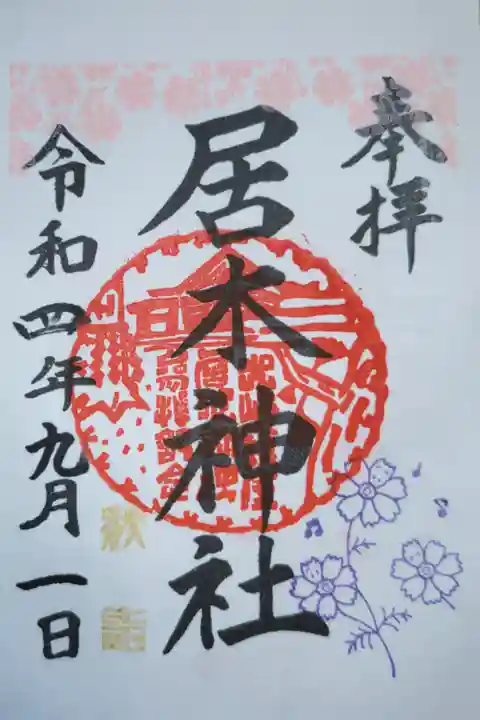 奉拝
居木神社
令和四年九月一日
秋詣